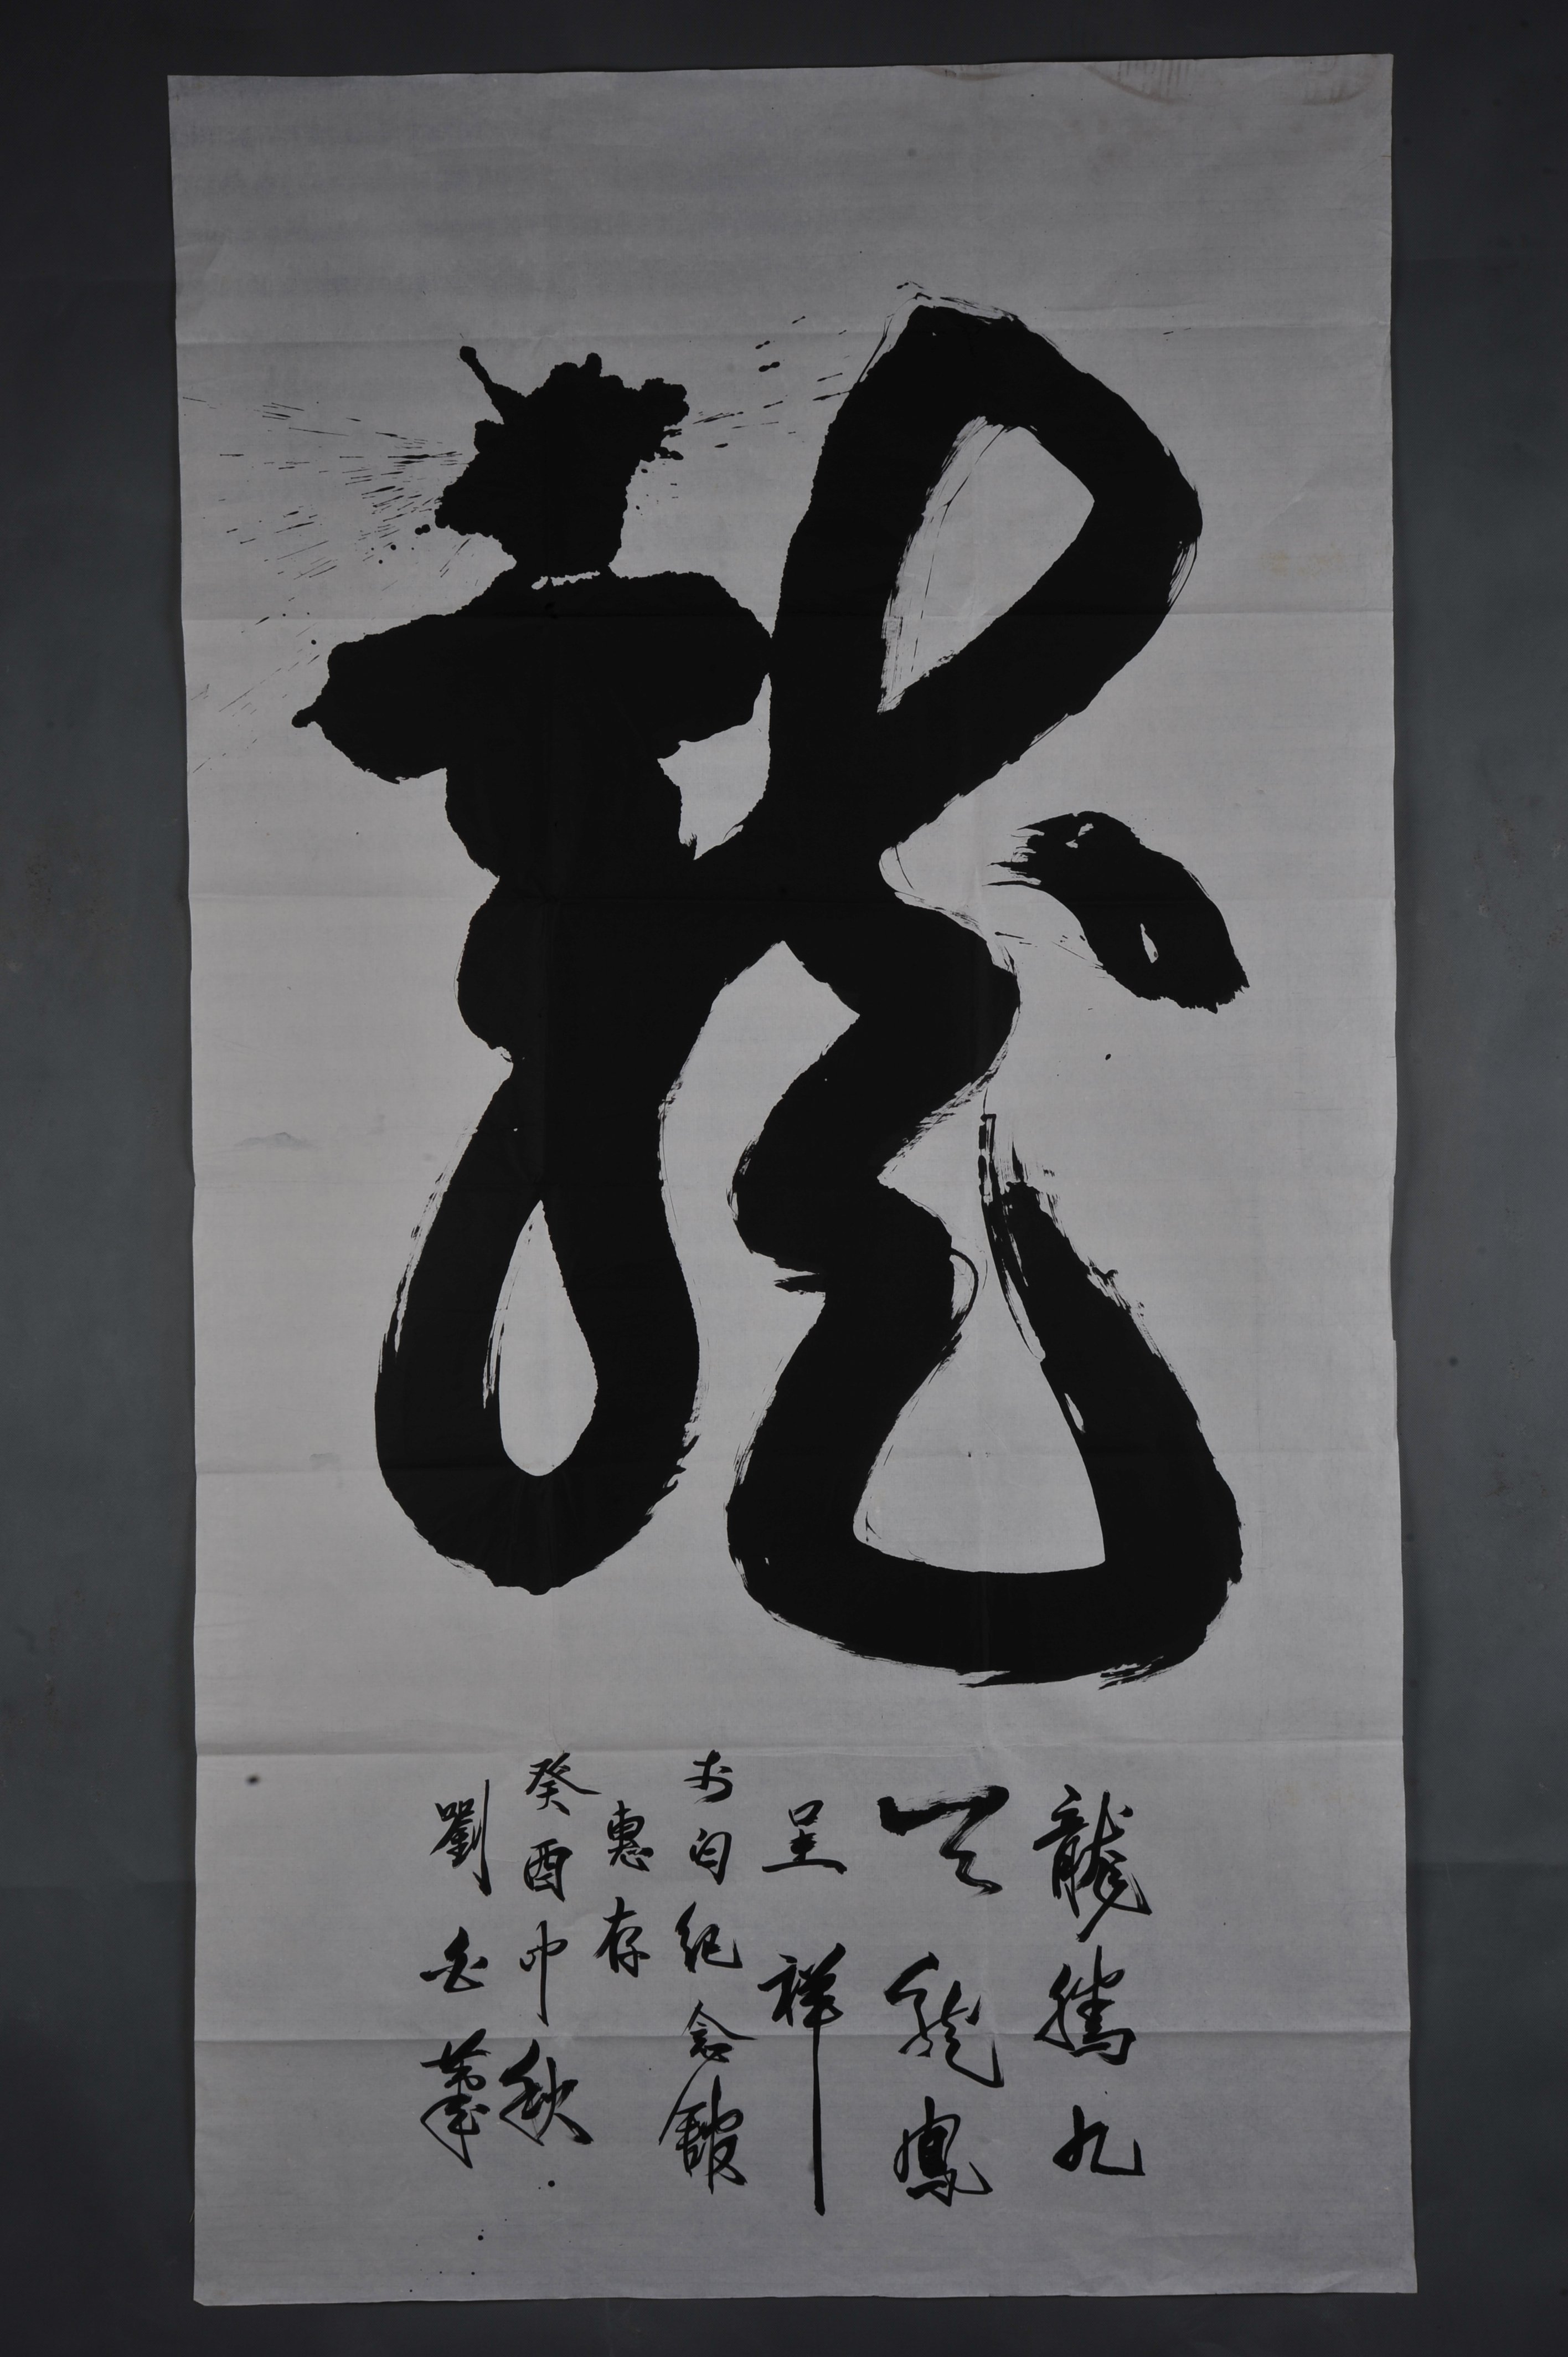 龍
龍騰九
天龍鳳
呈祥
李白紀念館
惠存
癸酉中秋
劉云華